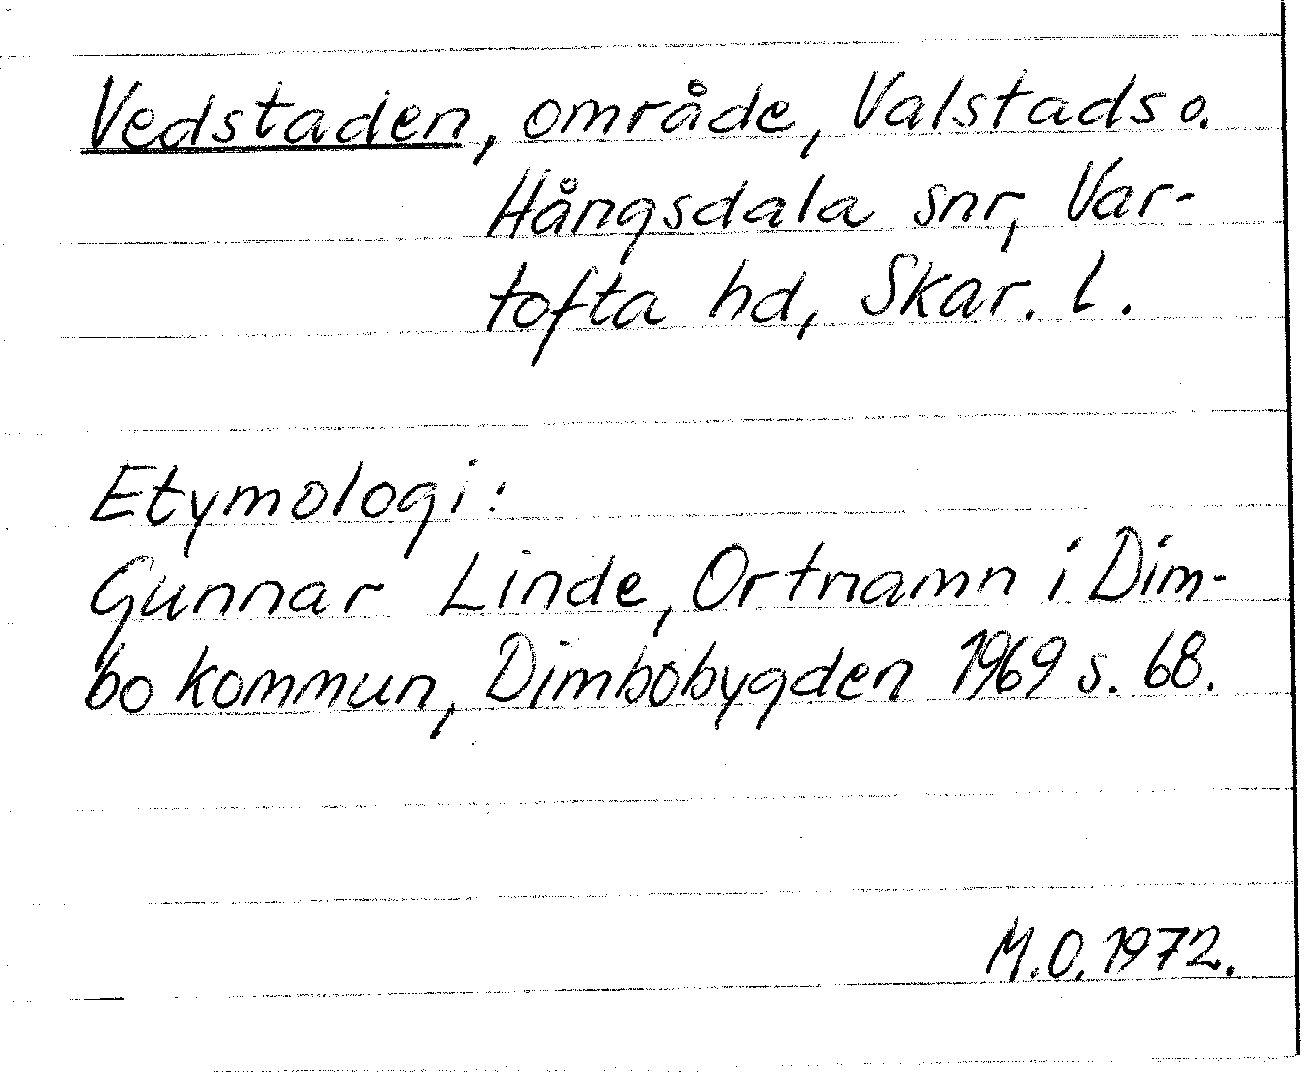 Vedstaden, område, Valstads o.
Hångsdala snr, Var-
tofta hd, Skar. l.
Etymologi:
Gunnar Linde, Ortnamn i Dim-
bo kommun, Dimbobygden 1969 s. 68.
M.O. 1972.